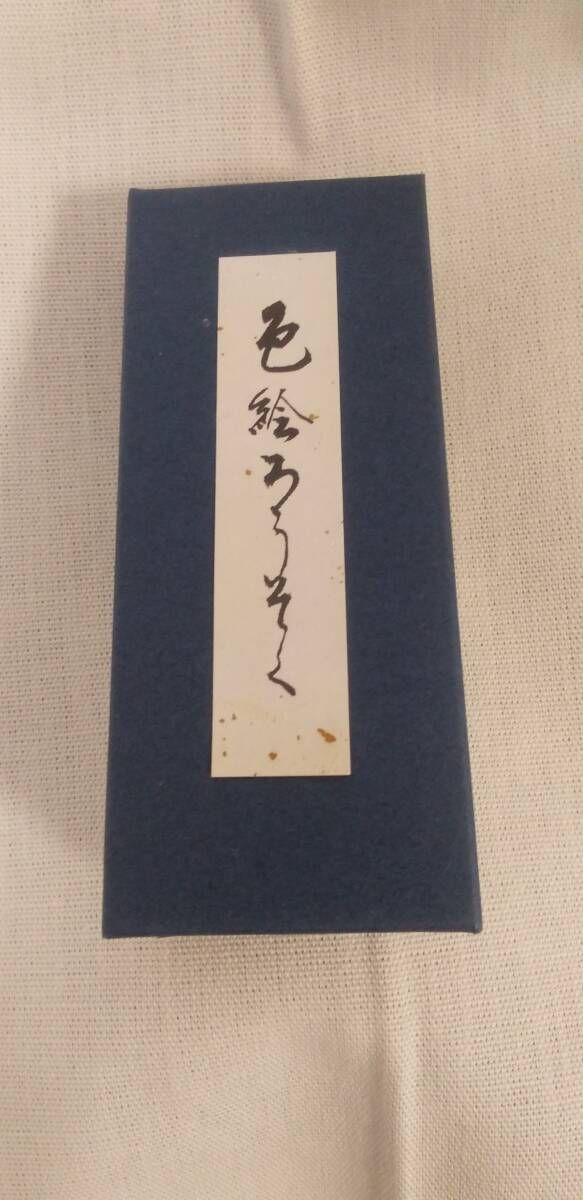 色絵ろうそく